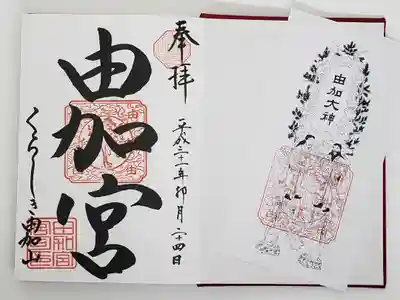 奉拝
平成三十一年卯月二十四日
由加宮
くらしき由加山
由加大神